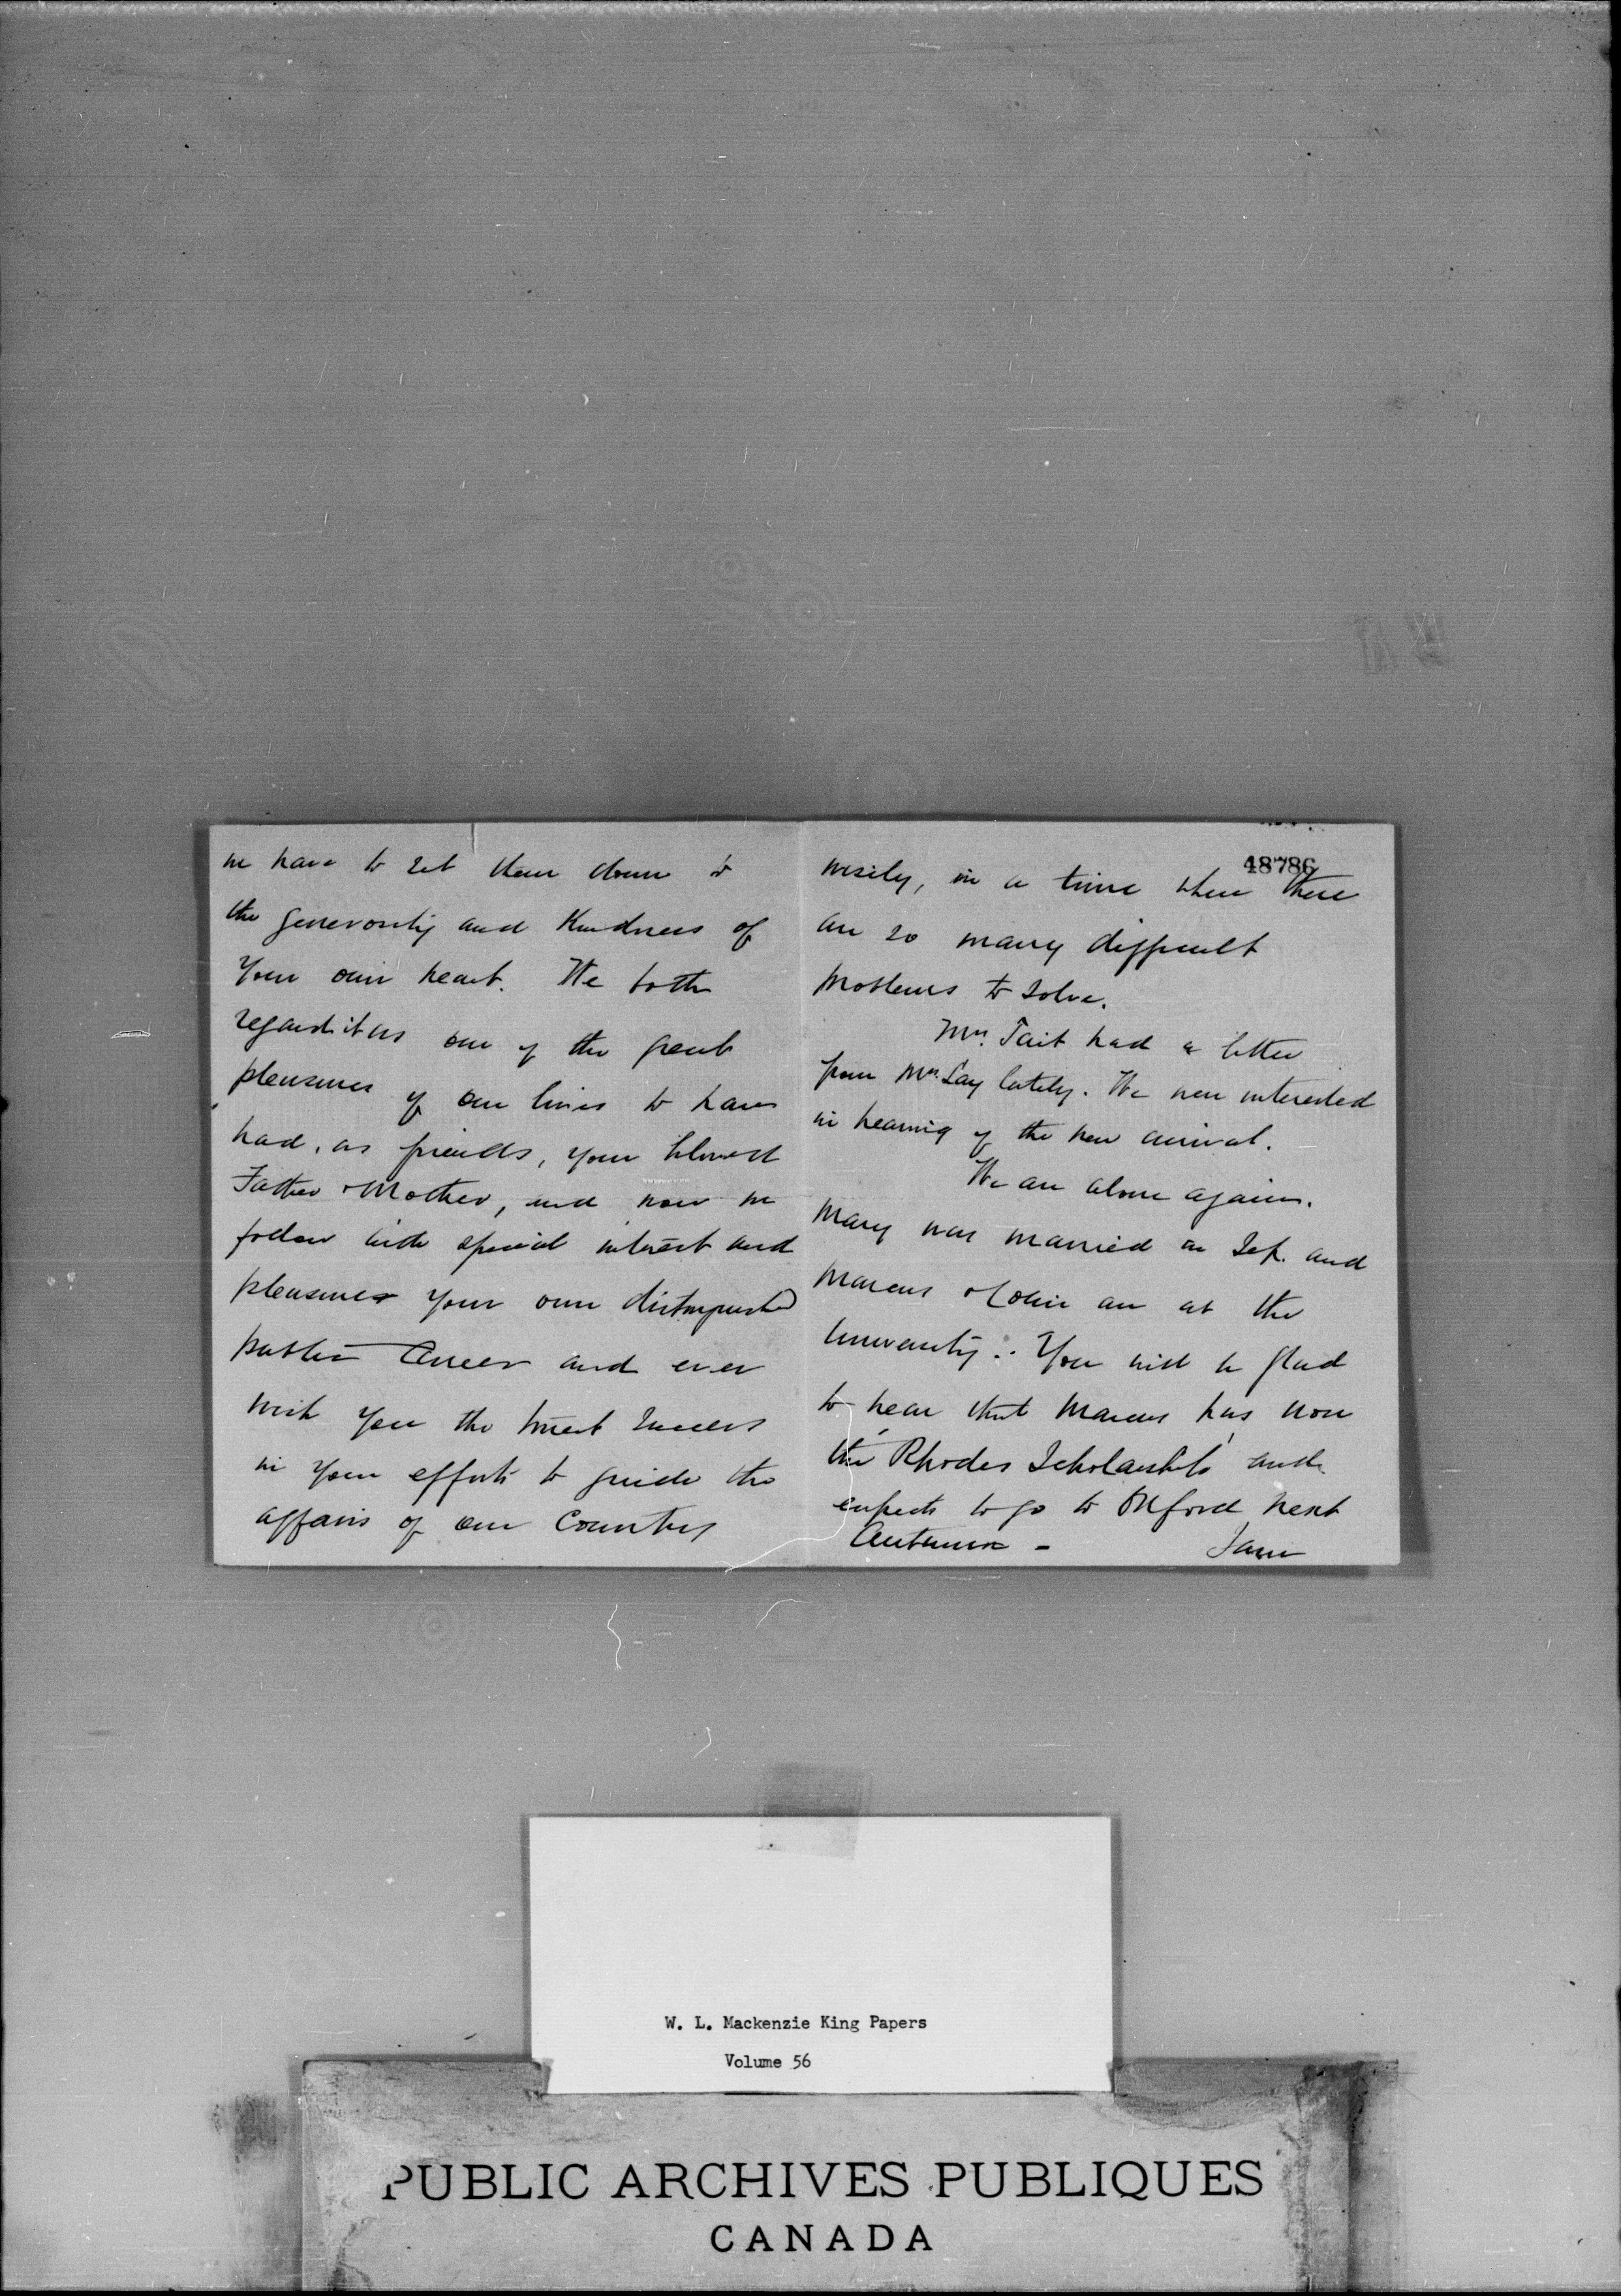 we have to set them down to
the generosity and kindness of
your own heart. We both
regard it as one of the great
pleasures of our lives to have
had, as friends, your beloved
Father & Mother, and now we
follow with special interest and
pleasure your own distinguished
public career and ever
wish you the truest success
in your efforts to guide the
affairs of our Country
48786
wisely, in a time when there
are so many difficult
problems to solve.
Mrs. Tait had a letter
from Mrs. Lay lately. We were interested
in hearing of the new arrival.
We are alone again.
Mary was married in Sep. and
Marcus & Colin are at the
University. You will be glad
to hear that Marcus has won
the Rhodes Scholarship and
expects to go to Oxford next
Autumn -
I am
W. L. Mackenzie King Papers
Volume 56
PUBLIC ARCHIVES PUBLIQUES
CANADA